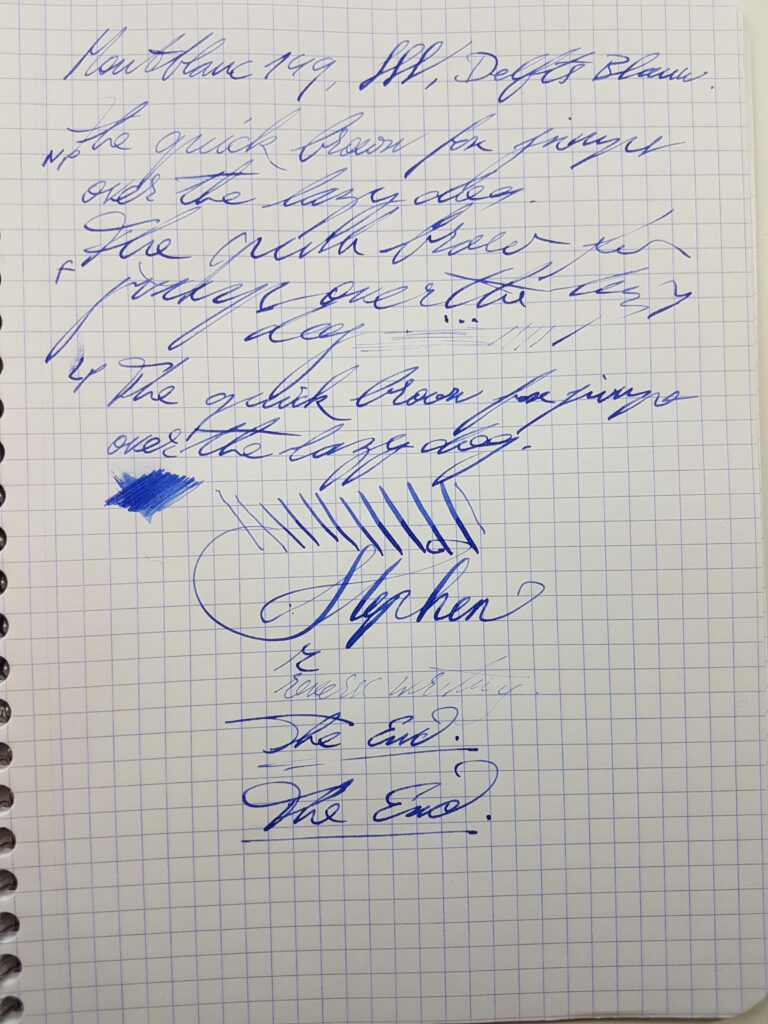 Montblanc 149, fff, Delfts Blauw.
NP The quick brown fox jumps
over the lazy dog.
F The quick brown fox
jumps over the lazy
dog
The quick brown fox jumps
over the lazy dog.
Stephen
reverse writing.
The End.
The End.